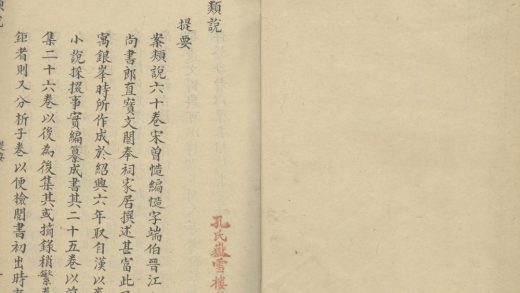 類說
提要
案類說六十卷宋曾慥編慥字端伯晉江
尚書郎直寶文閣奉祠家居撰述甚富此乃
寓銀峯時所作成於紹興六年取自漢以來
小說採掇事實編纂成書其二十五卷以前
集二十六卷以後為後集其或摘錄稍繁卷
鉅者則又分析子卷以便檢閱書初出時
孔氏嶽雪樓